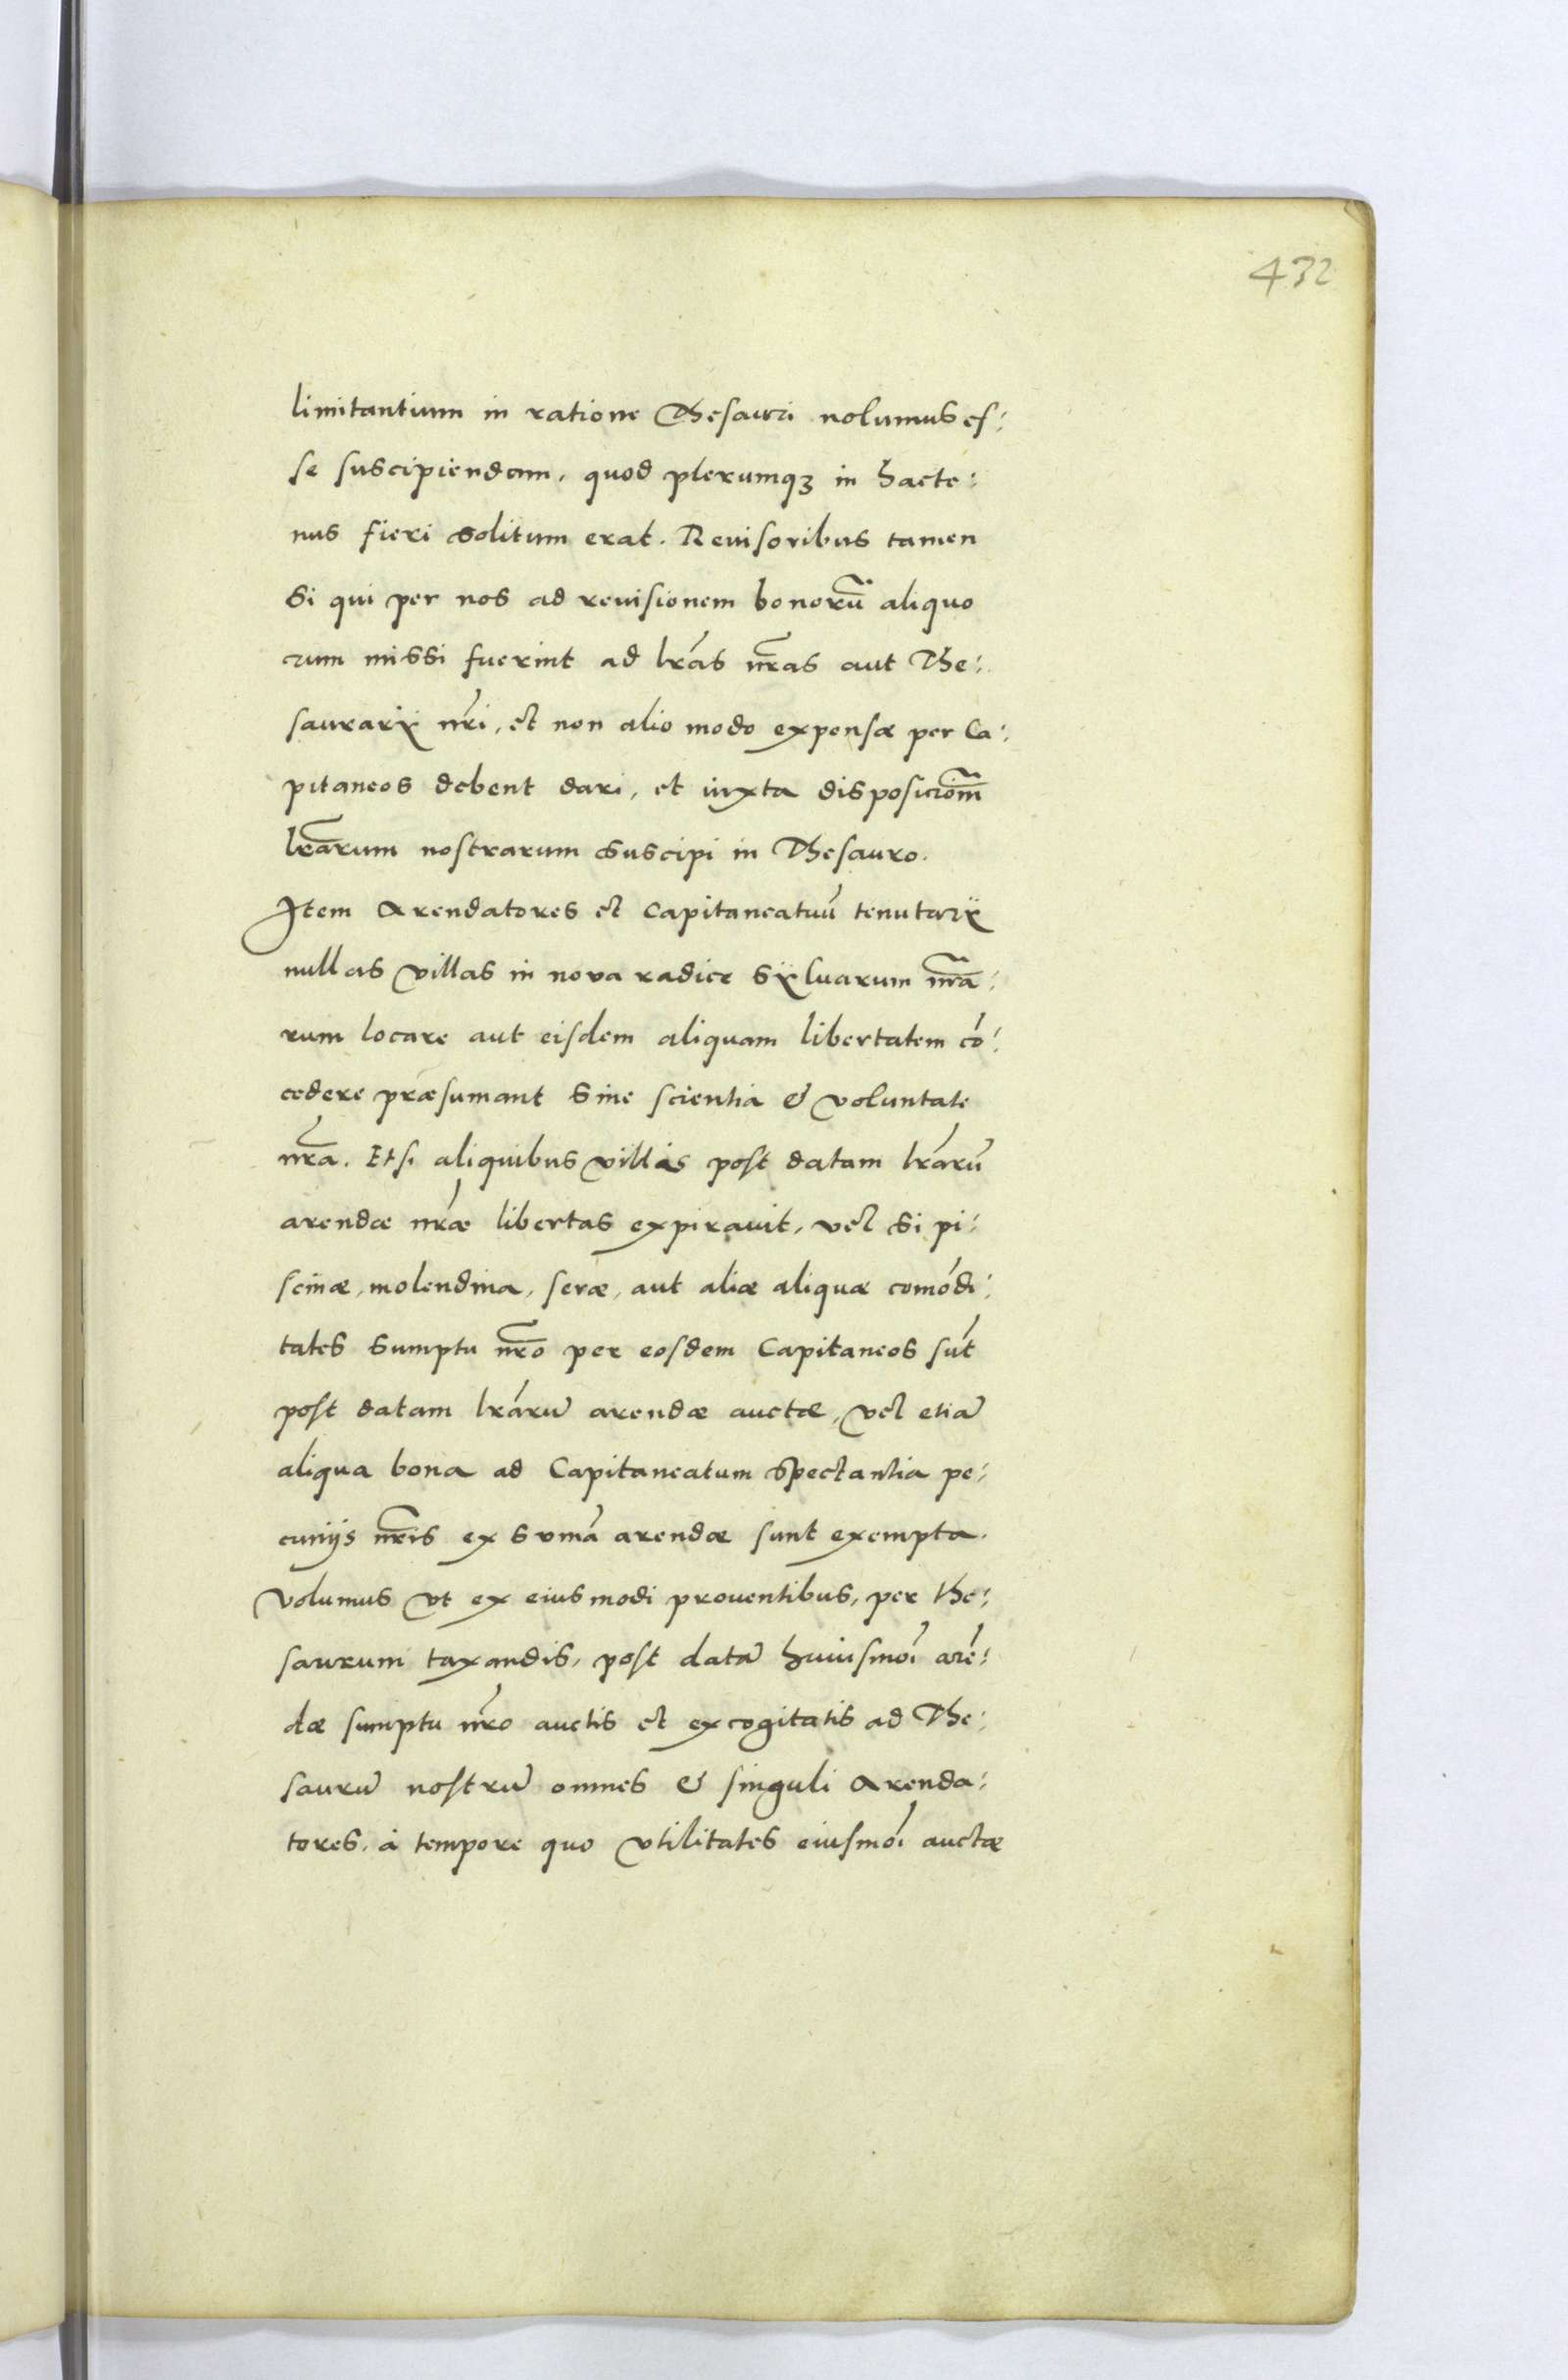 432
limitantium in ratione Thesauri nolumus es:
se suscipiendam, quod plerumqꝫ in hacte:
nus fieri solitum erat. Reuisoribus tamen
si qui per nos ad reuisionem bonorũ aliquo
rum missi fuerint ad lr̃as nr̃as aut The:
saurarÿ nr̃i, et non alio modo expensæ per Ca:
pitaneos debent dari, et iuxta disposicioñm
lr̃arum nostrarum suscipi in Thesauro.
Item Arendatores et Capitaneatuũ tenutarÿ
nullas villas in nova radice sÿluarum nr̃a:
rum locare aut eisdem aliquam libertatem cõ:
cedere præsumant sine scientia & voluntate
nr̃a. Et si aliquibus villis post datam lr̃arũ
arendæ nr̃æ libertas expirauit, vel si pi:
scinæ, molendina, seræ, aut aliæ aliquæ comõdi:
tates sumptu nr̃o per eosdem Capitaneos sũt
post datam lr̃arũ arendæ auctæ, vel etiã
aliqua bona ad Capitaneatum spectantia pe:
cunijs nr̃is ex sum̃a arendæ sunt exempta.
Volumus vt ex eiusmodi prouentibus, per the:
saurum taxandis, post datã huiusmo͂i arẽ:
dæ sumptu nr̃o auctis et excogitatis ad The:
saurũ nostrũ omnes & singuli Arenda:
tores, à tempore quo vtilitates eiusmo͂i auctæ